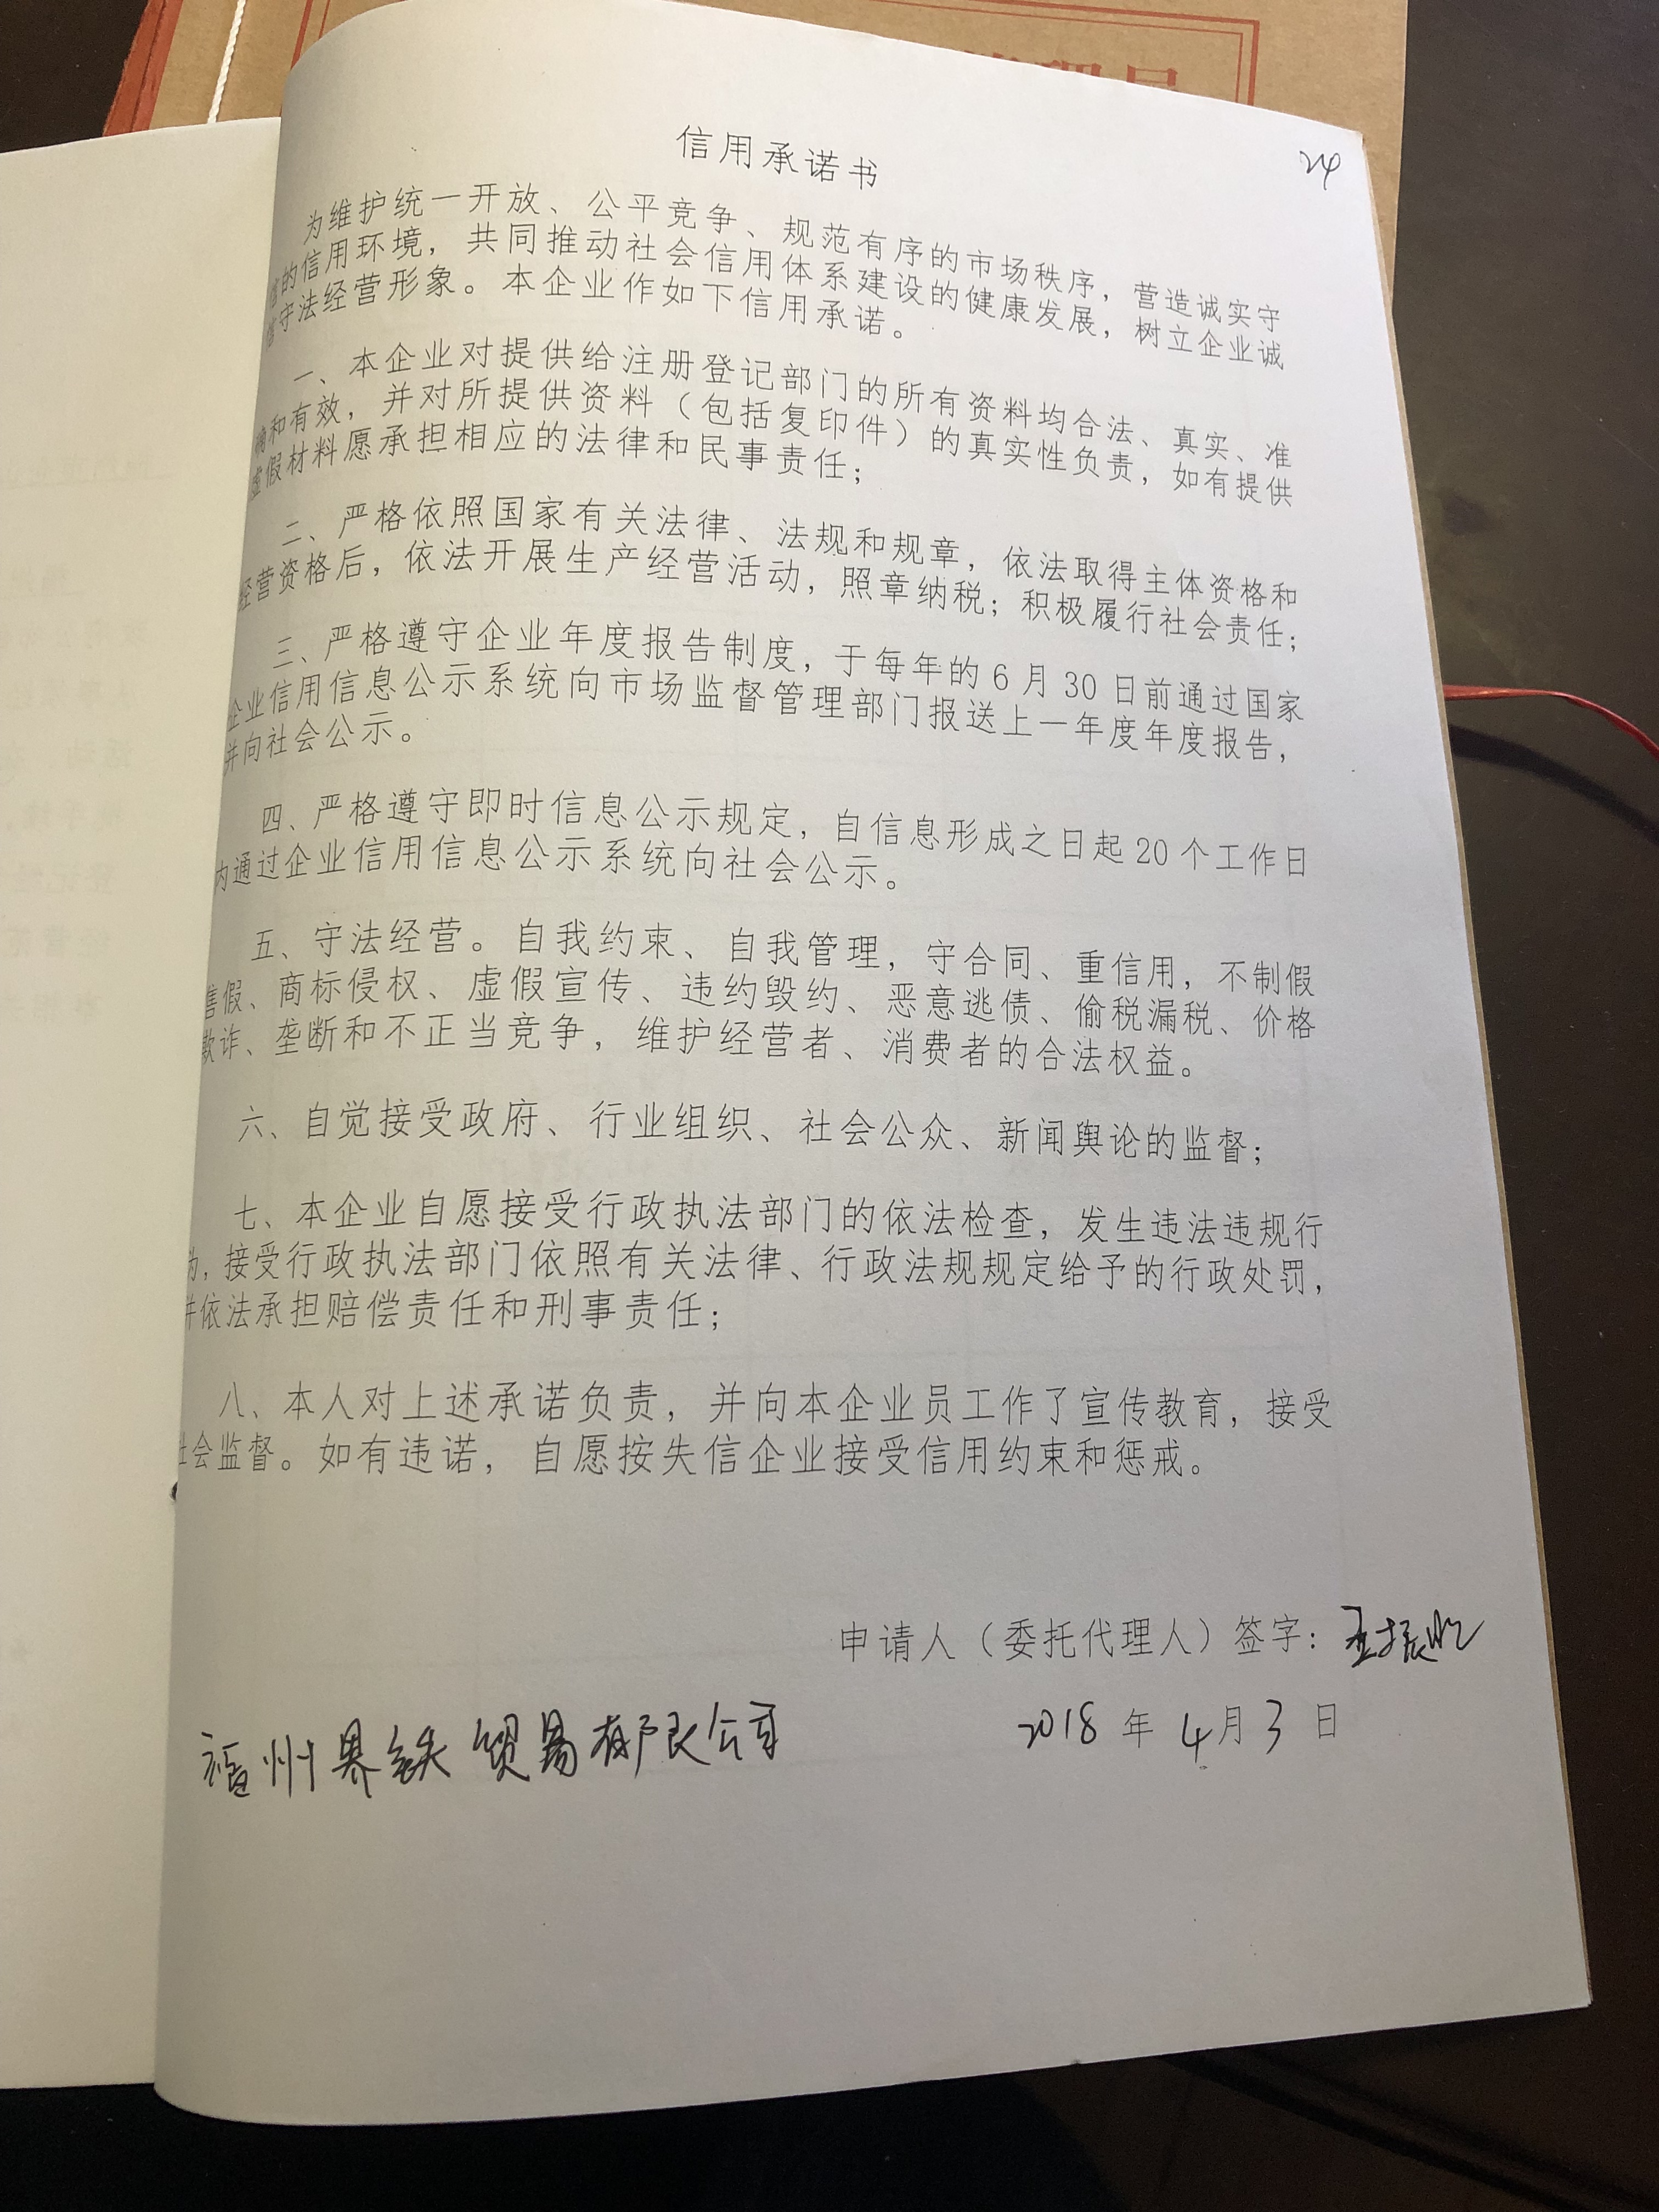 24
信用承诺书
为维护统一开放、公平竞争、规范有序的市场秩序，营造诚实守
信的信用环境，共同推动社会信用体系建设的健康发展，树立企业诚
信守法经营形象。本企业作如下信用承诺。
一、本企业对提供给注册登记部门的所有资料均合法、真实、准
确和有效，并对所提供资料（包括复印件）的真实性负责，如有提供
虚假材料愿承担相应的法律和民事责任；
二、严格依照国家有关法律、法规和规章，依法取得主体资格和
经营资格后，依法开展生产经营活动，照章纳税；积极履行社会责任；
三、严格遵守企业年度报告制度，于每年的6月30日前通过国家
企业信用信息公示系统向市场监督管理部门报送上一年度年度报告，
并向社会公示。
四、严格遵守即时信息公示规定，自信息形成之日起20个工作日
内通过企业信用信息公示系统向社会公示。
五、守法经营。自我约束、自我管理，守合同、重信用，不制假
售假、商标侵权、虚假宣传、违约毁约、恶意逃债、偷税漏税、价格
欺诈、垄断和不正当竞争，维护经营者、消费者的合法权益。
六、自觉接受政府、行业组织、社会公众、新闻舆论的监督；
七、本企业自愿接受行政执法部门的依法检查，发生违法违规行
为，接受行政执法部门依照有关法律、行政法规规定给予的行政处罚，
并依法承担赔偿责任和刑事责任；
八、本人对上述承诺负责，并向本企业员工作了宣传教育，接受
社会监督。如有违诺，自愿按失信企业接受信用约束和惩戒。
申请人（委托代理人）签字：
2018年4月3日
福州界铁贸易有限公司